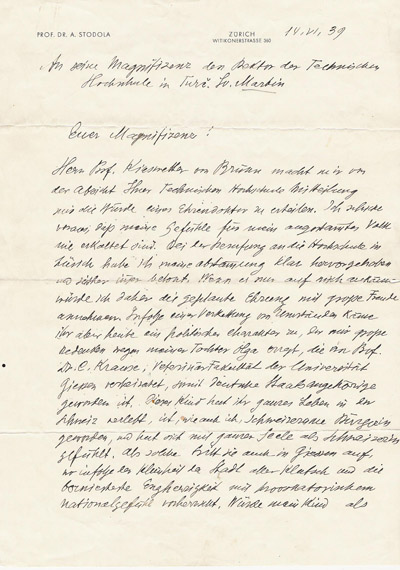 PROF. DR. A. STODOLA
ZÜRICH
WITIKONERSTRASSE 360
14.VI.39
An seine Magnifizenz den Rektor der Technischen
Hochschule in Turč. Sv. Martin
Euer Magnifizenz!
Herr Prof. Kieswetter von Brünn macht mir von
der Absicht Ihrer Technischen Hochschule Mitteilung
mir die Würde eines Ehrendoktor zu erteilen. Ich
voraus, dass meine Gefühle für mein angestammtes Volk
nie erkaltet sind. Bei der Berufung an die Hochschule in
Zürich habe ich meine Abstammung klar hervorgehoben
und seither immer betont. Wenn es nur auf mich ankäme
würde ich daher die geplante Ehrung mit grosser Freude
annehmen. Infolge einer Verkettung von Umständen käme
ihr aber heute ein politischer Charakter zu, der mir grosse
Bedenken wegen meiner Tochter Olga erregt, die in Prof.
Dr. C. Krause, Veterinärfakultät der Universität
Giessen verheiratet, somit deutsche Staatsangehörige
geworden ist. Dieses Kind hat ihr ganzes Leben in der
Schweiz verlebt, ist, wie auch ich, Schweizer Bürgerin
geworden, und hat sich mit ganzer Seele als Schweizerin
gefühlt. Als solche tritt sie auch in Giessen auf,
wo infolge der Kleinheit der Stadt aller Klatsch und die
bornierteste Engherzigkeit mit provokatorischem
Nationalgefühl vorherrscht. Würde mein Kind als